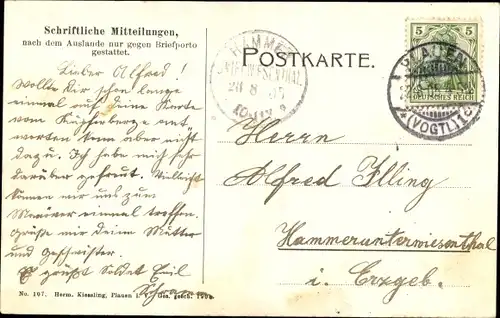 Schriftliche Mitteilungen,
nach dem Auslande nur gegen Briefporto
gestattet.
Lieber Alfred!
Wollte Dir schon lange
einmal auf deine Karte
vom Keilberge ant-
worten kam aber nicht
dazu. Ich habe mich sehr
darüber gefreut. Vielleicht
können wir uns zum
Manöver einmal treffen.
Grüße mir deine Mutter
und Geschwister.
Es grüßt Soldat Emil
Schramm
POSTKARTE.
HAMMER
UNTERWIESENTHAL
28 8 05
5 5
DEUTSCHES REICH
PLAUEN
*(VOGTL) 1 c
Herrn
Alfred Illing
Hammerunterwiesenthal
i. Erzgeb.
No. 107. Herm. Kiessling, Plauen i. V. Ges. gesch.